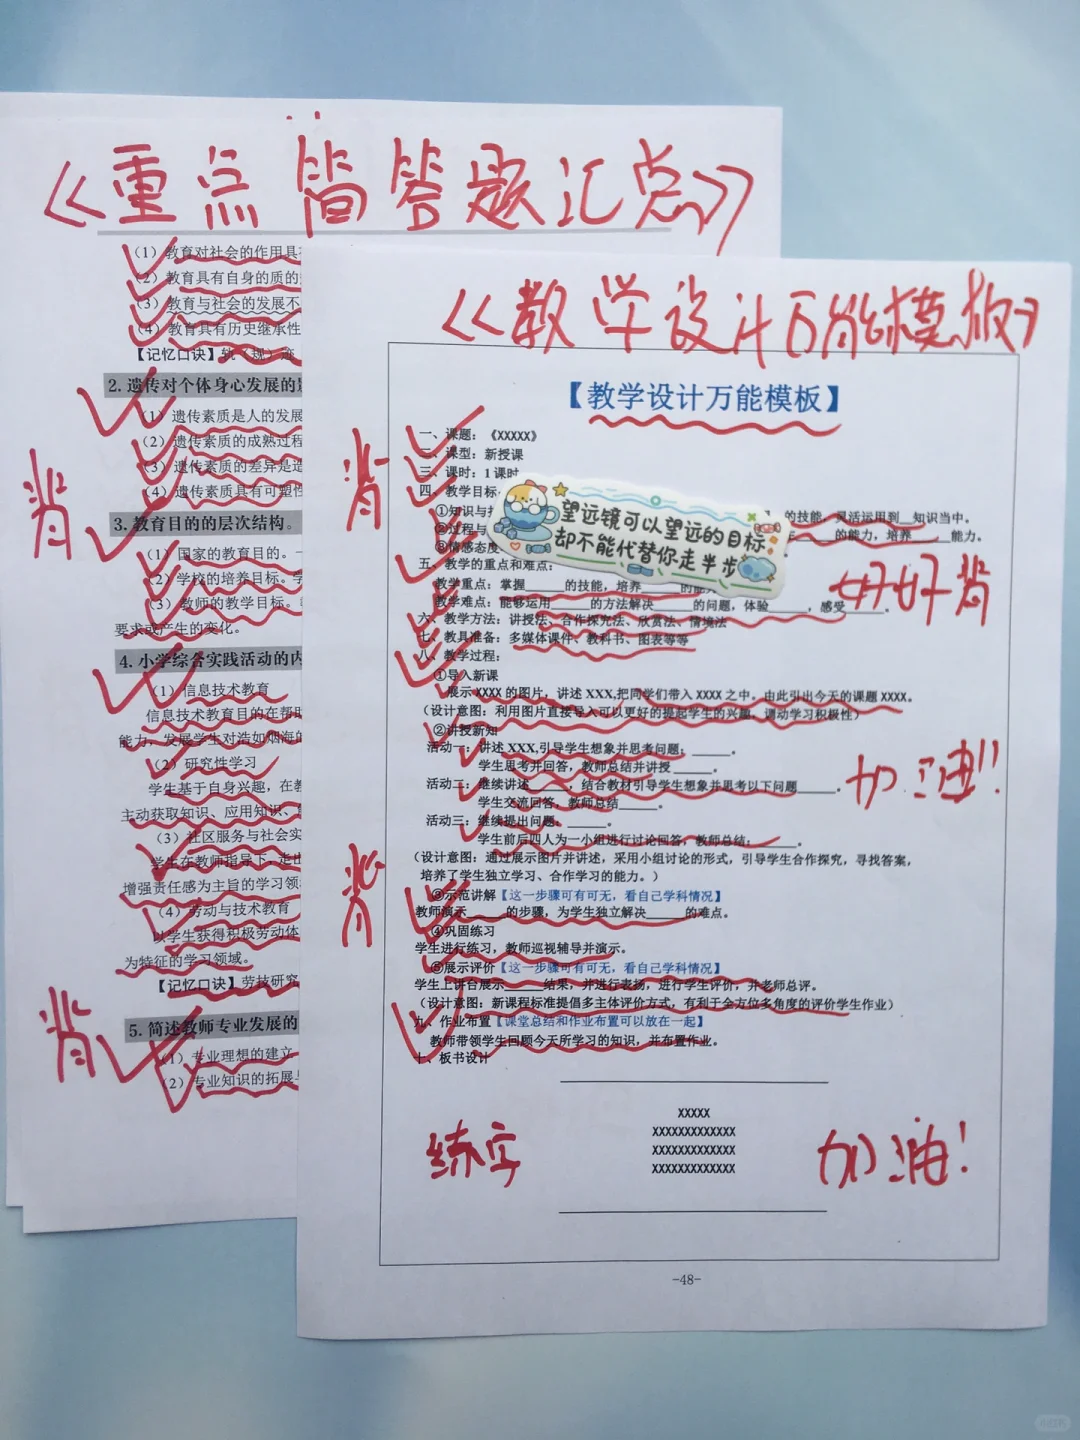 《重点简答题汇总》
(1)教育对社会的作用具
(2)教育具有自身的质的
(3)教育与社会的发展不
(4)教育具有历史继承性
【记忆口诀】
2. 遗传对个体身心发展的
(1)遗传素质是人的发展
(2)遗传素质的成熟过程
(3)遗传素质的差异是造
(4)遗传素质具有可塑性
背
3. 教育目的的层次结构。
(1)国家的教育目的。一
(2)学校的培养目标。学
(3)教师的教学目标。
要求或产生的变化。
4. 小学综合实践活动的内
(1)信息技术教育
信息技术教育目的在帮助
能力,发展学生对浩如烟海的
(2)研究性学习
学生基于自身兴趣,在教
主动获取知识、应用知识、
(3)社区服务与社会实
学生在教师指导下,走出
增强责任感为主旨的学习领
(4)劳动与技术教育
以学生获得积极劳动体
为特征的学习领域。
【记忆口诀】劳技研究
背
5. 简述教师专业发展的
(1)专业理想的建立
(2)专业知识的拓展与
《教学设计万能模板》
【教学设计万能模板】
一、课题:《XXXXX》
二、课型:新授课
三、课时:1 课时
背
四、教学目标
①知识与
的技能,灵活运用到__知识当中。
②过程与
的能力,培养______能力。
③情感态度
望远镜可以望远的目标
却不能代替你走半步
五、教学的重点和难点:
教学重点:掌握______的技能,培养______的能力
教学难点:能够运用______的方法解决______的问题,体验______,感受______。
好好背
六、教学方法:讲授法、合作探究法、欣赏法、情境法
七、教具准备:多媒体课件、教科书、图表等等
八、教学过程:
①导入新课
展示 XXXX 的图片,讲述 XXX,把同学们带入 XXXX 之中。由此引出今天的课题 XXXX。
(设计意图:利用图片直接导入可以更好的提起学生的兴趣,调动学习积极性)
②讲授新知
活动一:讲述 XXX,引导学生想象并思考问题:______。
学生思考并回答,教师总结并讲授 ______。
活动二:继续讲述______,结合教材引导学生想象并思考以下问题______。
学生交流回答,教师总结______。
加油!!
活动三:继续提出问题:______。
学生前后四人为一小组进行讨论回答,教师总结:______。
(设计意图:通过展示图片并讲述,采用小组讨论的形式,引导学生合作探究,寻找答案,
培养了学生独立学习、合作学习的能力。)
背
③示范讲解【这一步骤可有可无,看自己学科情况】
教师演示______的步骤,为学生独立解决______的难点。
④巩固练习
学生进行练习,教师巡视辅导并演示。
⑤展示评价【这一步骤可有可无,看自己学科情况】
学生上讲台展示______结果,并进行表扬,进行学生评价,并老师总评。
(设计意图:新课程标准提倡多主体评价方式,有利于全方位多角度的评价学生作业)
九、作业布置【课堂总结和作业布置可以放在一起】
教师带领学生回顾今天所学习的知识,并布置作业。
十、板书设计
XXXXX
XXXXXXXXXXXXX
XXXXXXXXXXXXX
XXXXXXXXXXXXX
练字
加油!
-48-